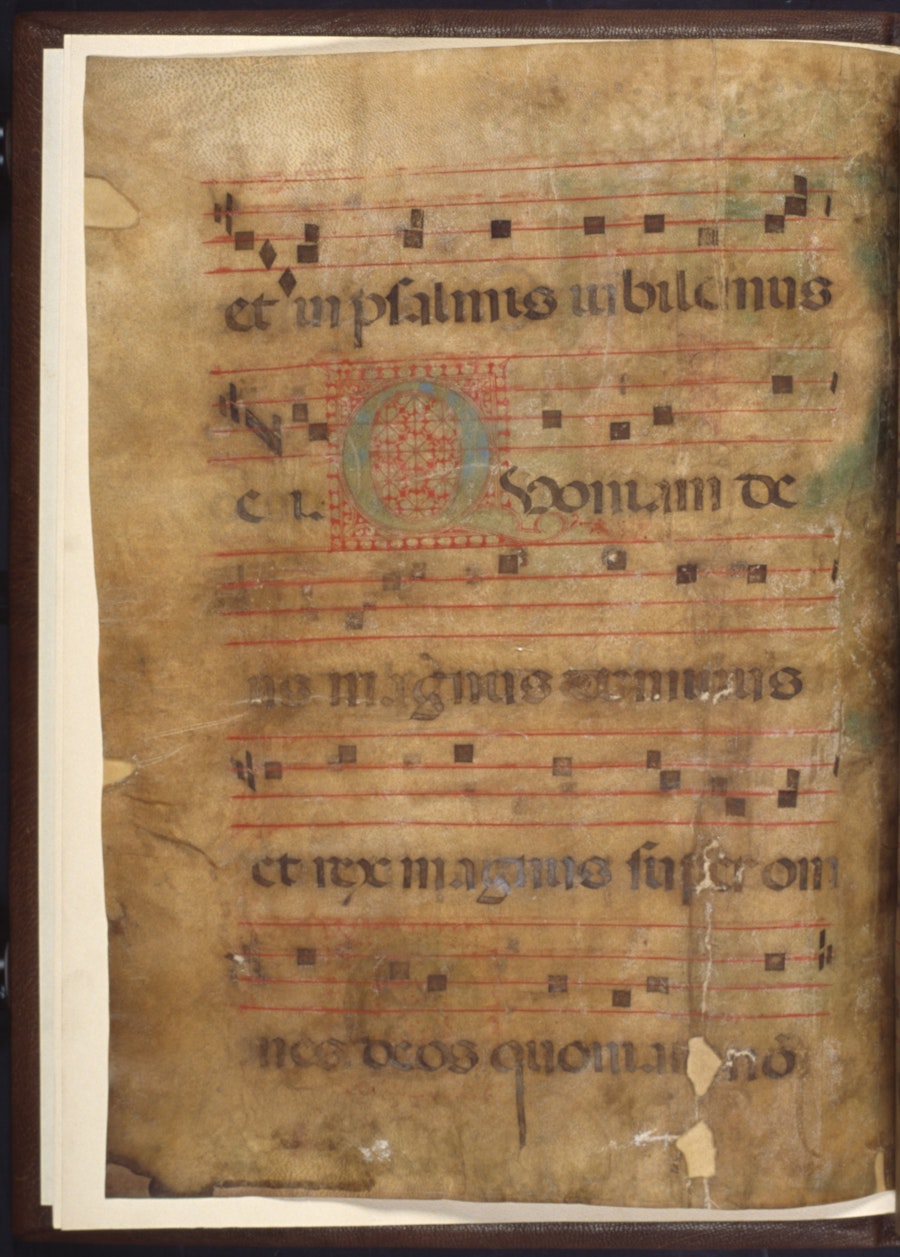 et in psalmis iubilemus
ei. Quoniam de
us magnus dominus
et rex magnus super om
nes deos quoniam nō